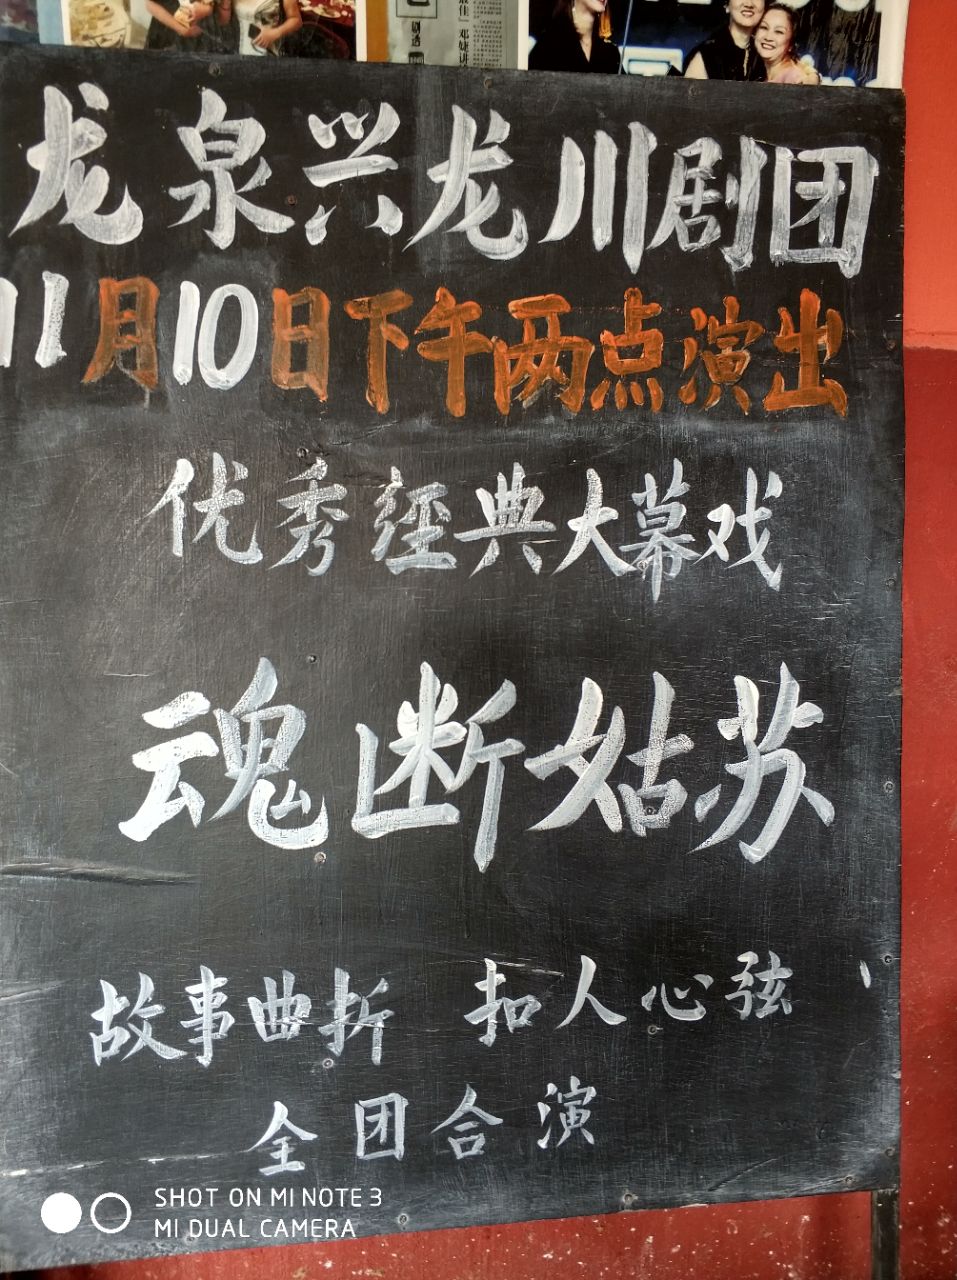 龙泉兴龙川剧团
11月10日下午两点演出
优秀经典大幕戏
魂断姑苏
故事曲折 扣人心弦
全团合演
SHOT ON MI NOTE 3
MI DUAL CAMERA